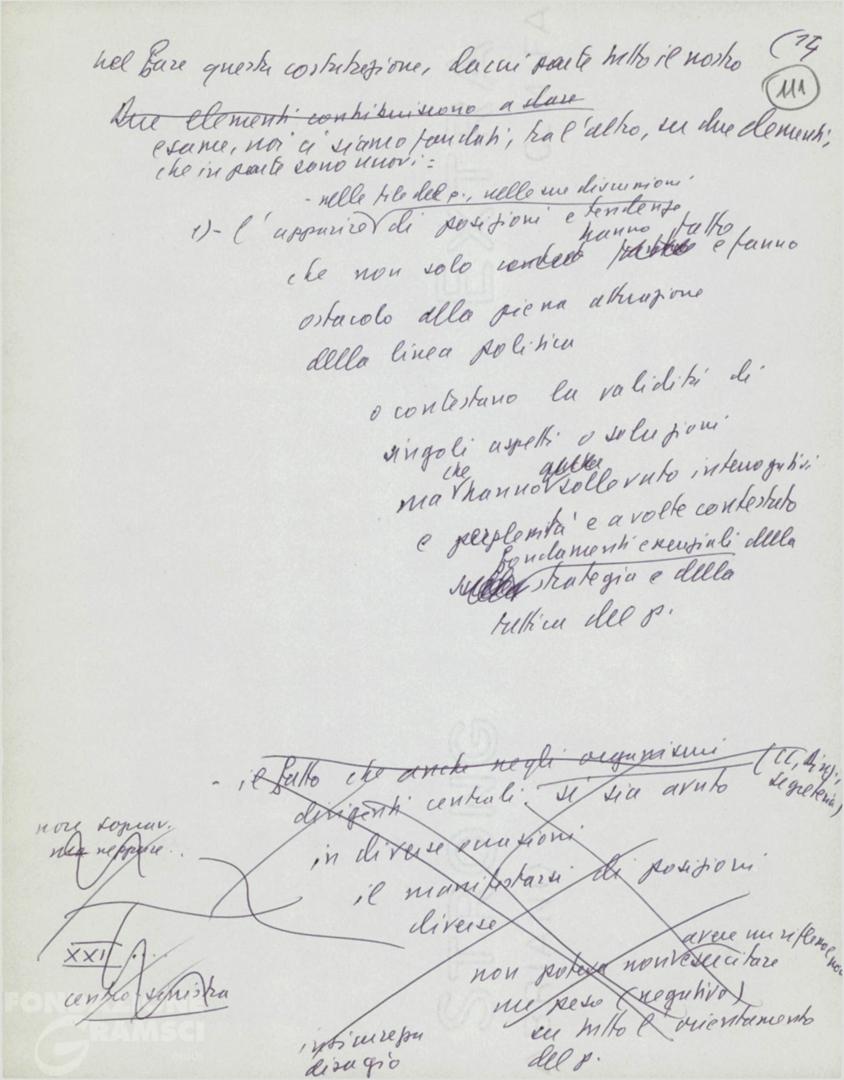 (14
111
nel fare questa constatazione, da cui parte tutto il nostro
Due elementi contribuiscono a dare
esame, noi ci siamo fondati, tra l'altro, su due elementi,
che in parte sono nuovi:
- nelle file del p., nelle sue discussioni
1) - l'apparire di posizioni e tendenze
hanno fatto
che non solo e fanno
ostacolo alla piena attuazione
della linea politica
o contestano la validità di
singoli aspetti o soluzioni
che
ma hanno sollevato interrogativi
e perplessità e a volte contestato
fondamenti essenziali della
strategia e della
tattica del p.
- il fatto che anche negli organismi (CC, Direz.,
dirigenti centrali si sia avuto segreteria)
non soprav.
ma neppure..
in diverse occasioni
il manifestarsi di posizioni
diverse
avere un riflesso e non
XXI ...
non poteva non esercitare
centro-sinistra
un peso (negativo)
su tutto l'orientamento
del p.
disagio
FONDAZIONE
GRAMSCI